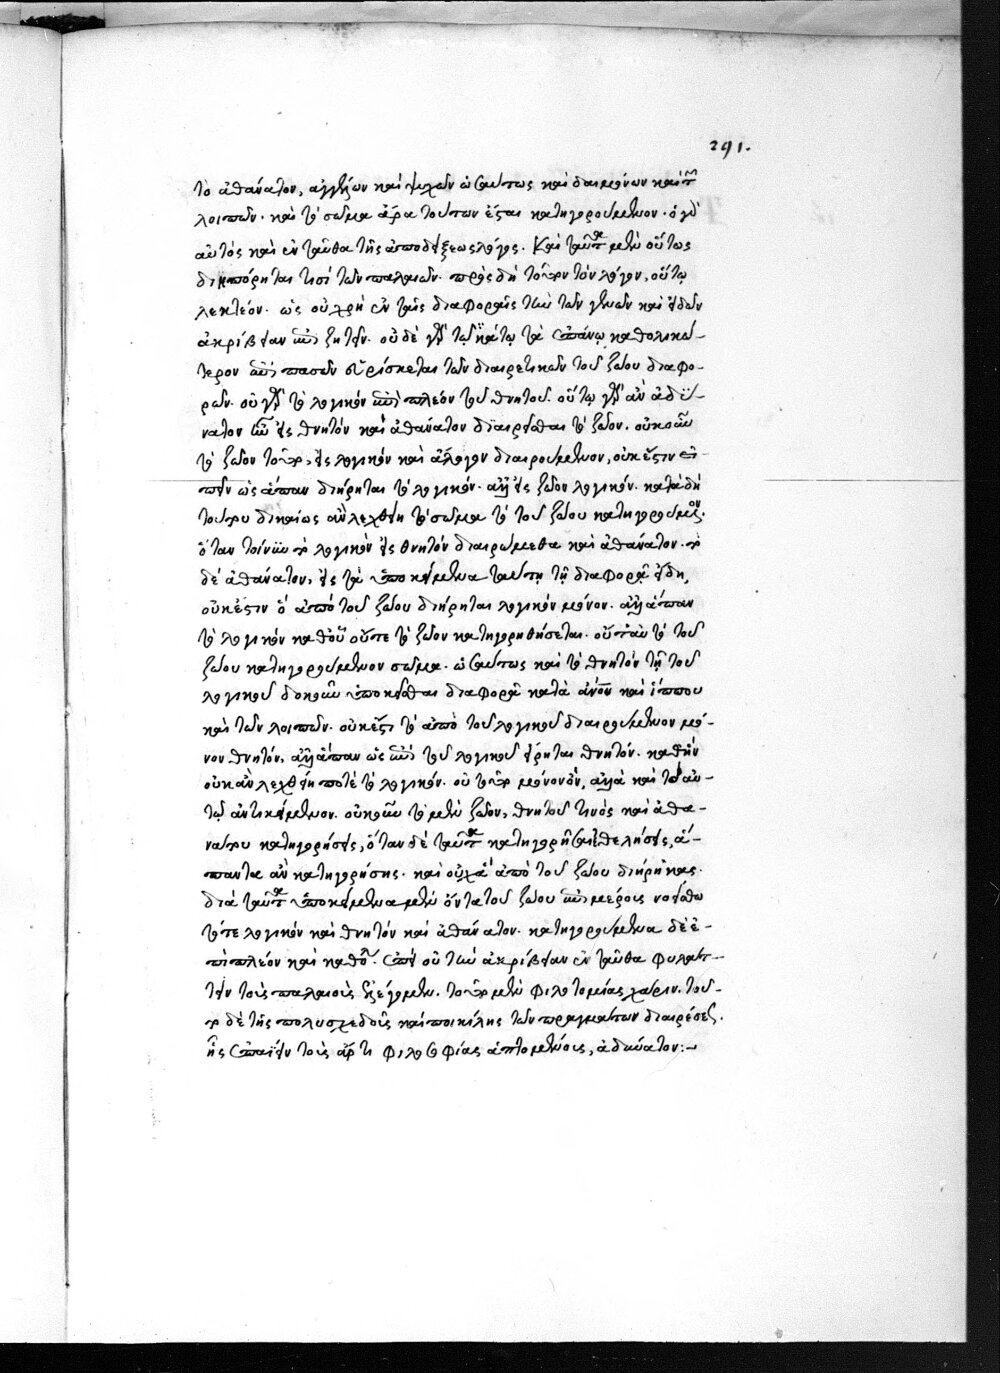 291.
τὸ ἀθάνατον, ἀγγέλων καὶ ψυχῶν ὡσαύτως καὶ δαιμόνων καὶ τῶν
λοιπῶν. καὶ τὸ σῶμα ἄρα τούτων ἔσται κατηγορούμενον. ὁ γὰρ
αὐτὸς καὶ ἐνταῦθα τῆς ἀποδείξεως λόγος. Καὶ ταῦτα μὲν οὕτως
διηπόρηται τισὶ τῶν παλαιῶν. πρὸς δὴ τοῦτον τὸν λόγον, οὕτω
λεκτέον. ὡς οὐ χρὴ ἐν ταῖς διαφοραῖς τὴν τῶν γενῶν καὶ εἰδῶν
ἀκρίβειαν ἐπιζητεῖν. οὐδὲ γὰρ τῷ κάτω τὰ ἐπάνω καθολικώ-
τερον ἐπὶ πασῶν εὑρίσκεται τῶν διαιρετικῶν τοῦ ζώου διαφο-
ρῶν. οὐ γὰρ τὸ λογικὸν ἐπὶ πλέον τοῦ θνητοῦ. οὕτω γὰρ ἂν ἀδύ-
νατον ἦν εἰς θνητὸν καὶ ἀθάνατον διαιρεῖσθαι τὸ ζῶον. οὐκοῦν
τὸ ζῶον τοῦτο, εἰς λογικὸν καὶ ἄλογον διαιρούμενον, οὐκ ἔστιν εἰ-
πεῖν ὡς ἅπαν διήρηται τὸ λογικόν. ἀλλ' εἰς ζῶον λογικόν. κατὰ δὴ
τοῦτο δικαίως ἂν λεχθείη τὸ σῶμα τὸ τοῦ ζώου κατηγορούμενον.
ὅταν τοίνυν τὸ λογικὸν εἰς θνητὸν διαιρώμεθα καὶ ἀθάνατον. τὸ
δὲ ἀθάνατον, εἰς τὰ ὑποκείμενα ταύτῃ τῇ διαφορᾷ εἴδη,
οὐκ ἔστιν ὃ ἀπὸ τοῦ ζώου διήρηται λογικὸν μόνον. ἀλλ' ἅπαν
τὸ λογικὸν καθ' οὗ οὔτε τὸ ζῶον κατηγορηθήσεται. οὔτ' ἂν τὸ τοῦ
ζώου κατηγορούμενον σῶμα. ὡσαύτως καὶ τὸ θνητὸν τῇ τοῦ
λογικοῦ δοκοῦν ὑποκεῖσθαι διαφορᾷ κατὰ ἀνθρώπου καὶ ἵππου
καὶ τῶν λοιπῶν. οὐκ ἔστι τὸ ἀπὸ τοῦ λογικοῦ διαιρούμενον μό-
νον θνητόν, ἀλλ' ἅπαν ὡς ἐπὶ τοῦ λογικοῦ εἴρηται θνητόν. καθ' ἣν
οὐκ ἂν λεχθείη ποτὲ τὸ λογικόν. οὐ τοῦτο μόνον οὖν, ἀλλὰ καὶ τὸ αὐ-
τῷ ἀντικείμενον. οὐκοῦν τὸ μὲν ζῶον, θνητοῦ τινὸς καὶ ἀθα-
νάτου κατηγορήσεις, ὅταν δὲ ταῦτα κατηγορῆσαι ἐθελήσεις, ἅ-
παντα ἂν κατηγορήσῃς. καὶ οὐχ ἃ ἀπὸ τοῦ ζώου διῄρηκας.
διὰ ταῦτα ὑποκείμενα μὲν ὄντα τοῦ ζώου ἐπὶ μέρους νοείσθω
τό τε λογικὸν καὶ θνητὸν καὶ ἀθάνατον. κατηγορούμενα δὲ ἐ-
πὶ πλέον καὶ καθόλου. ἐπεὶ οὖν τὴν ἀκρίβειαν ἐνταῦθα φυλάτ-
τειν τοὺς παλαιοὺς λέγομεν. τοῦτο μὲν φιλοτομίας χάριν. τοῦ-
το δὲ τῆς πολυσχεδοῦς καὶ ποικίλης τῶν πραγμάτων διαιρέσεως.
ἧς ἐπαΐειν τοὺς ἄρτι φιλοσοφίας ἁπτομένους, ἀδύνατον:—